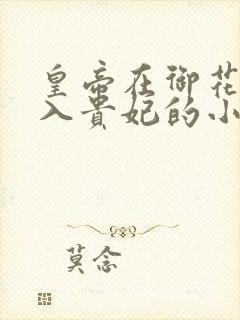 皇帝在御花
入贵妃的小
莫念